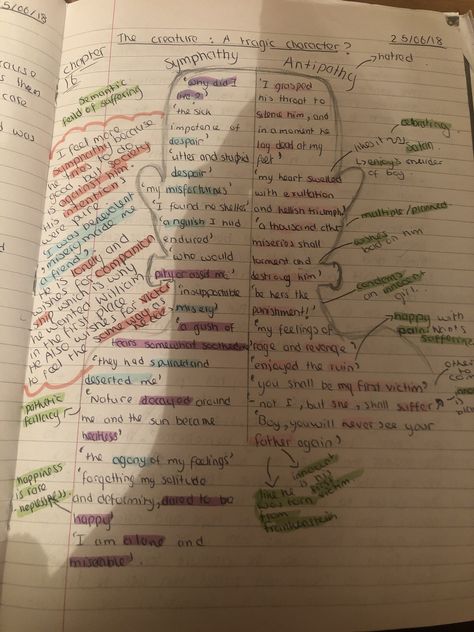 5/06/18
The creature: A tragic character?
25/06/18
chapter
16
Symphathy
Antipathy
hatred
Semantic
field of suffering
I feel more
symphathy because
he tries to do
good but society
is against him.
His intentions
were pure.
'I was benevolent
misery made me
a fiend'?
He is lonely and
wishes for companion
ship which is why
he wanted William
in the first place.
He Also wishes for victor
to feel the same way as
'why did I
live?'
'the sick
impotence of
despair'
'utter and stupid
despair'
'my misfortunes'
'I found no shelter'
'anguish I had
endured'
'who would
pity or assist me'
'insupportable
misery'
'a gush of
tears somewhat soothed me'
'they had spurned and
deserted me'
'Nature decayed around
me and the sun became
heatless'
'the agony of my feelings'
'forgetting my solitude
and deformity, dared to be
happy'
'I am alone and
miserable'.
pathetic
fallacy
happiness
is rare
hopeless
'I grasped
his throat to
silence him, and
in a moment he
lay dead at my
feet'
'my heart swelled
with exultation
and hellish triumph'
'a thousand other
miseries shall
torment and
destroy him'
'be hers the
punishment!'
'my feelings of
rage and revenge'
'enjoyed the ruin'
'you shall be my first victim'
'not I, but she, shall suffer'
'Boy, you will never see your
father again'
celebrating
like
satan
enjoys murder
of boy
multiple/planned
wishes
bad on him
condemns
an innocent
girl.
happy with
pain. Wants
sufferance
innocent
he is his
next
victim
like he
was torn
from
frankenstein